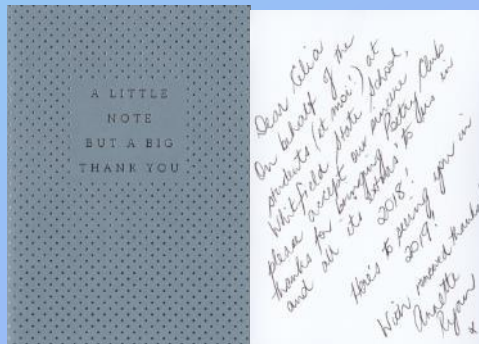 A LITTLE
NOTE
BUT A BIG
THANK YOU
Dear Celia
On behalf of the
students (et moi!) at
Whitfield State School,
please accept our sincere
thanks for bringing Poetry Club
and all its to us in
2018!
Here's to seeing you in
2019!
With renewed thanks
Annette
x